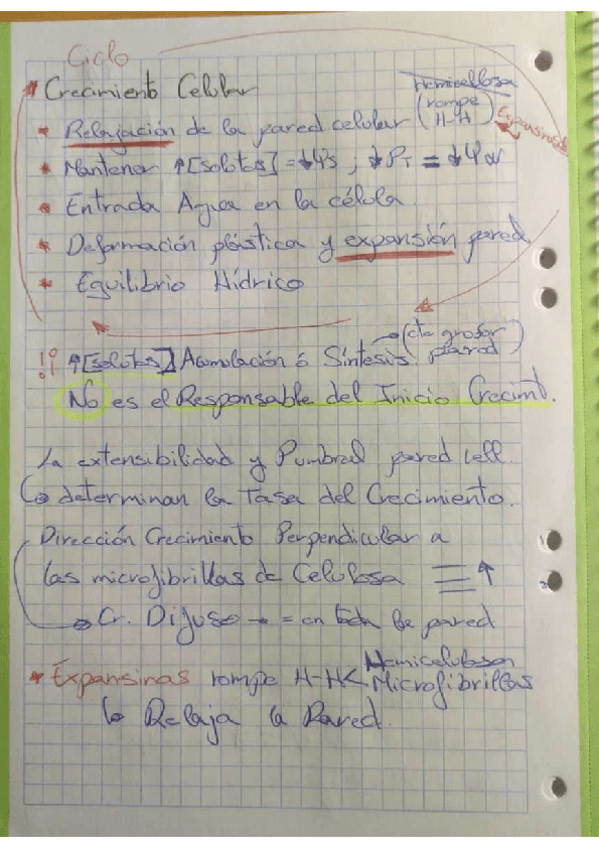 Ciclo
* Crecimiento Celular
Hemicellosa
* Relajación de la pared celular (rompe H-H) Expansinas
* Mantener ↑[solutos] = ↓Ψs ; ↓PT = ↓Ψw
* Entrada Agua en la célula
* Deformación plástica y expansión pared
* Equilibrio Hídrico
→ (cte grosor pared)
!! ↑[solutos] Acumulación ó Síntesis
No es el Responsable del Inicio Crecimt.
La extensibilidad y Pumbral pared cell.
↳ determinan la Tasa del Crecimiento.
Dirección Crecimiento Perpendicular a
las microfibrillas de Celulosa ↑
→ Cr. Difuso → = en toda la pared
* Expansinas rompe H-H < Hemicelulosa
Microfibrillas
↳ Relaja la Pared.